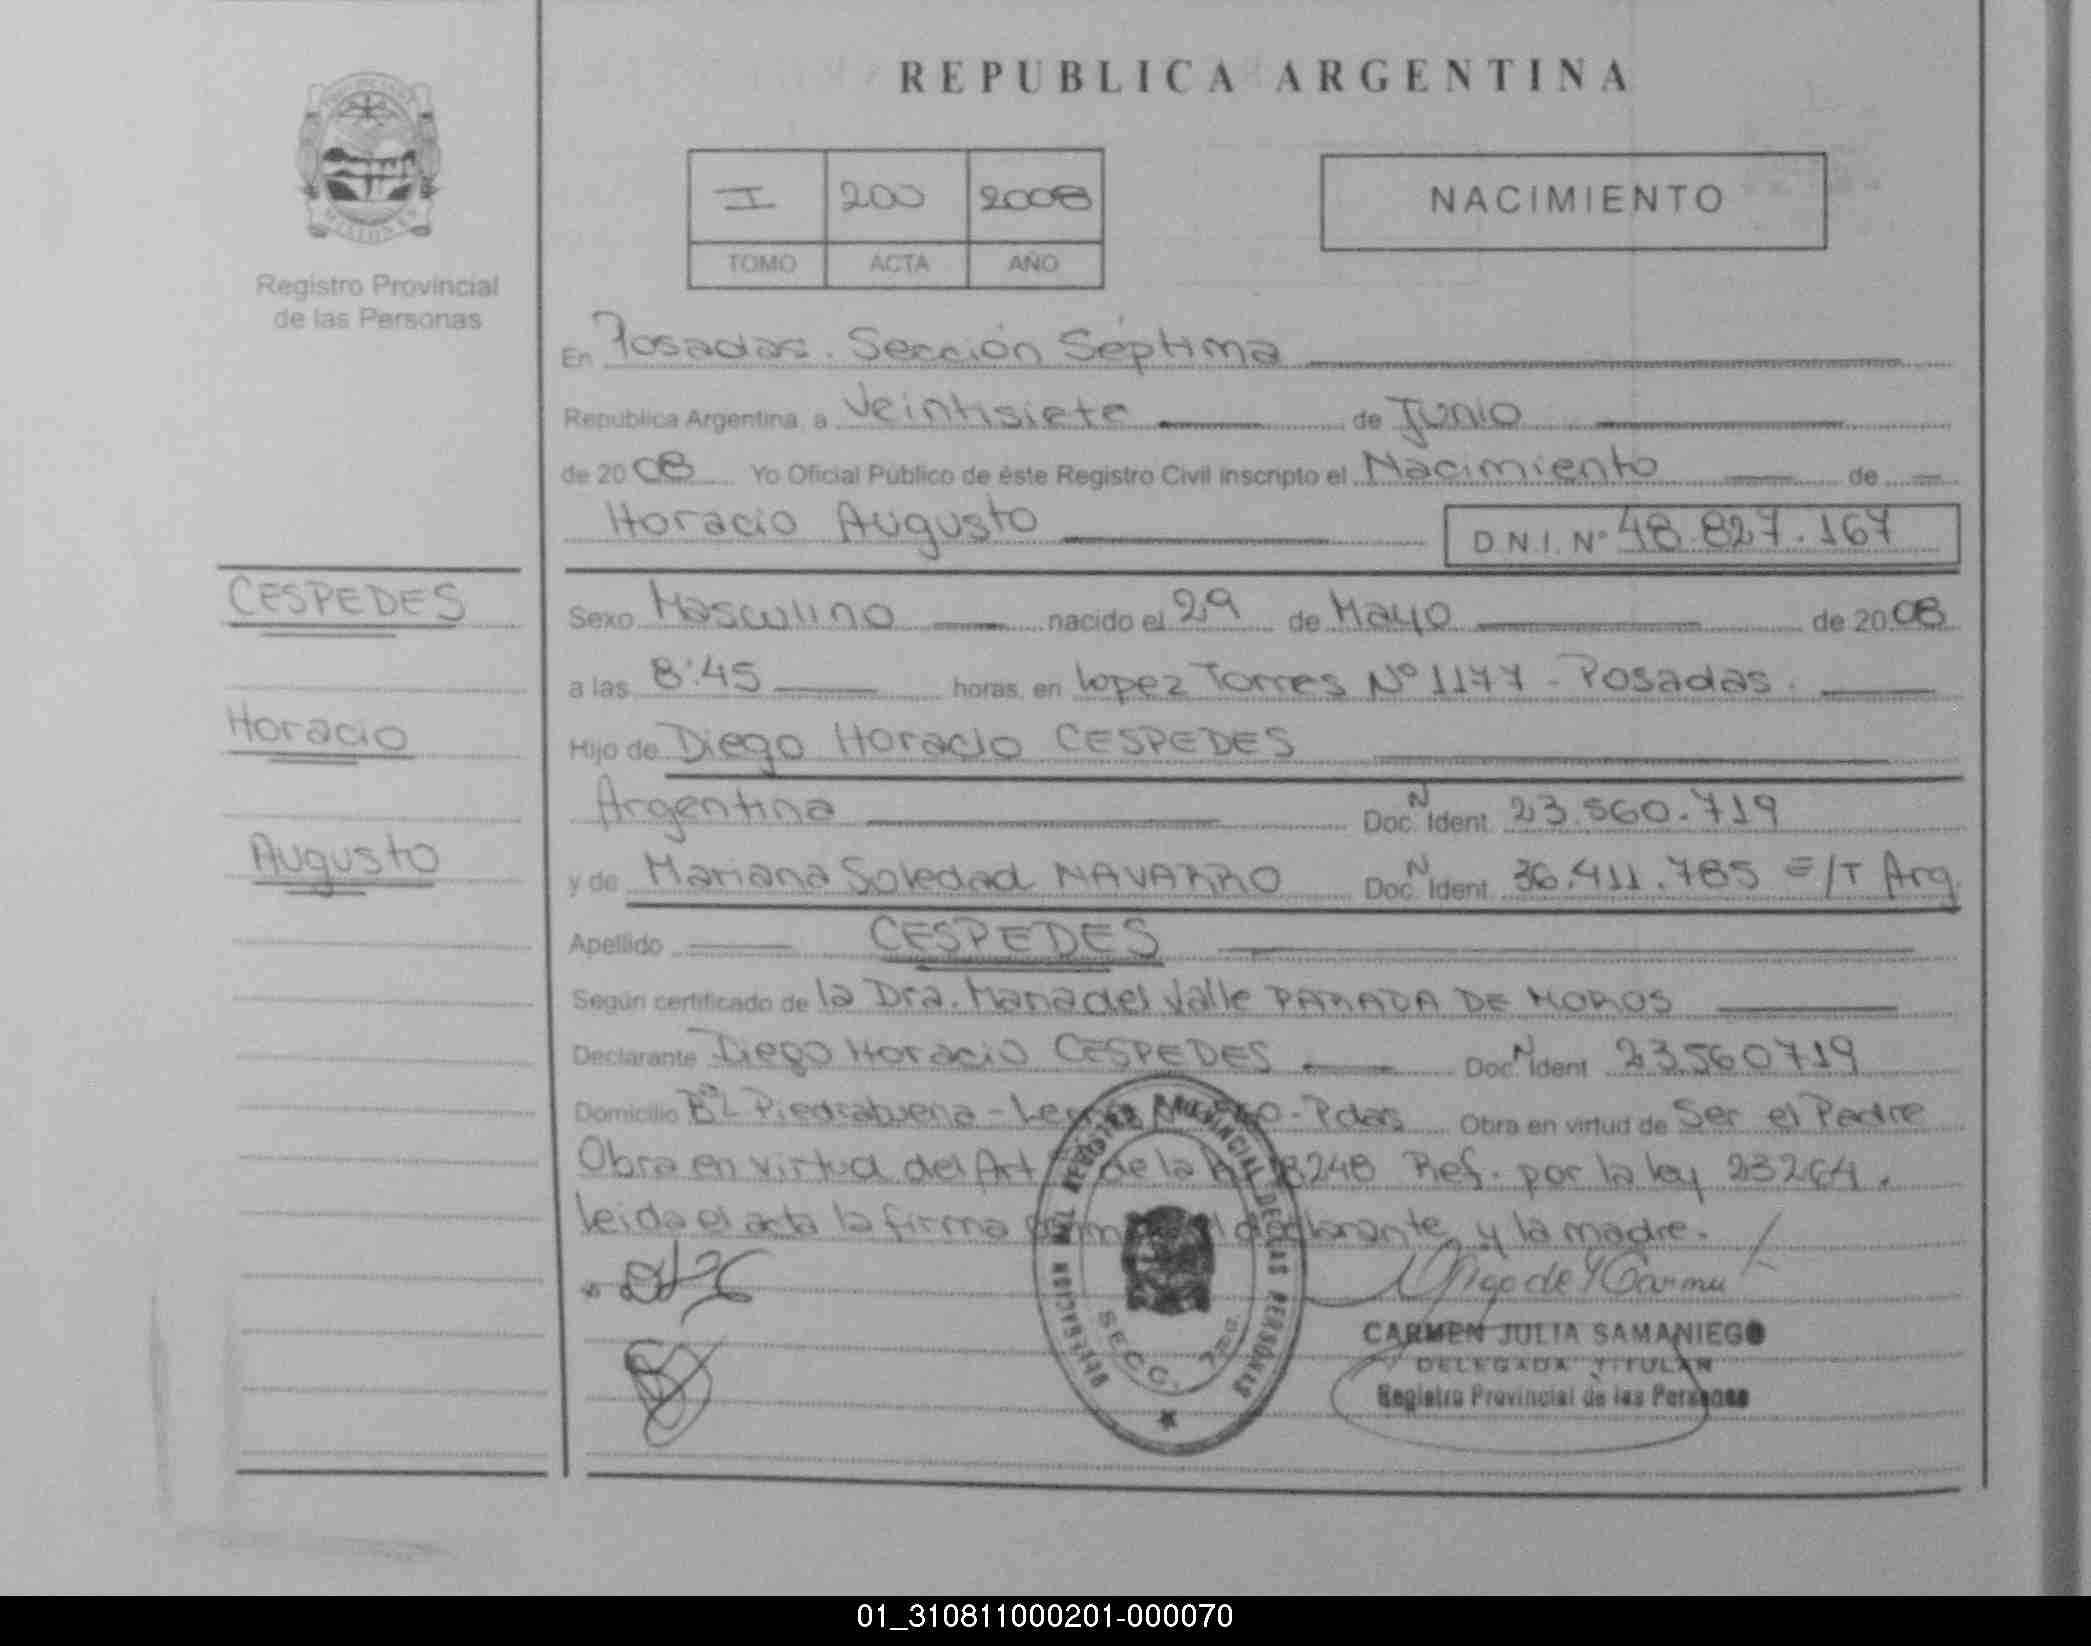 REPUBLICA ARGENTINA
I 200 2008
TOMO ACTA AÑO
NACIMIENTO
MISIONES
Registro Provincial
de las Personas
En Posadas. Sección Séptima
Republica Argentina, a Veintisiete de Junio
de 2008 Yo Oficial Público de éste Registro Civil inscripto el Nacimiento de
Horacio Augusto
D.N.I. Nº 48.827.167
CESPEDES
Horacio
Augusto
Sexo Masculino nacido el 29 de Mayo de 2008
a las 8:45 horas, en Lopez Torres Nº 1177 - Posadas.
Hijo de Diego Horacio CESPEDES
Argentina Doc. N Ident. 23.560.719
y de Mariana Soledad NAVARRO Doc. N Ident. 36.411.785 E/T Arg.
Apellido CESPEDES
Según certificado de la Dra. Maria del Valle PARADA DE MOROS
Declarante Diego Horacio CESPEDES Doc. N Ident. 23.560719
Domicilio Piedrabuena - Pdas Obra en virtud de Ser el Padre
Obra en virtud del Art de la 18248 Ref. por la ley 23264.
Leida el acta la firma declarante y la madre.
REGISTRO PROVINCIAL DE LAS PERSONAS
SECC. 7ma.
CARMEN JULIA SAMANIEGO
DELEGADA TITULAR
Registro Provincial de las Personas
01_310811000201-000070